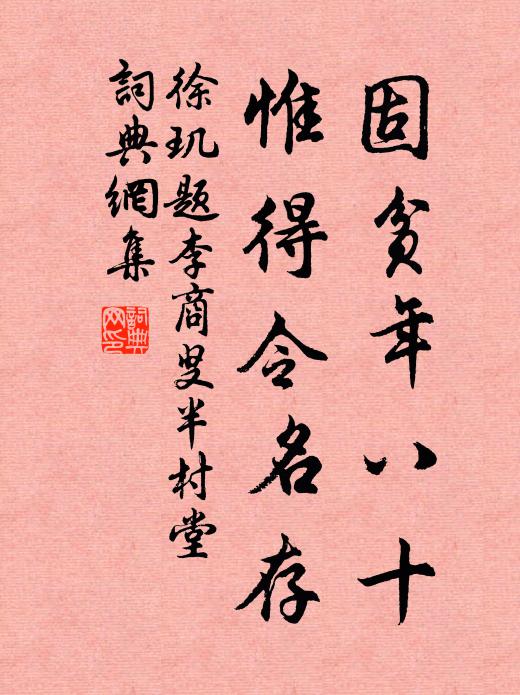 固貧年八十
惟得令名存
徐玑题李商叟半村堂
詞典網集
詞典网印